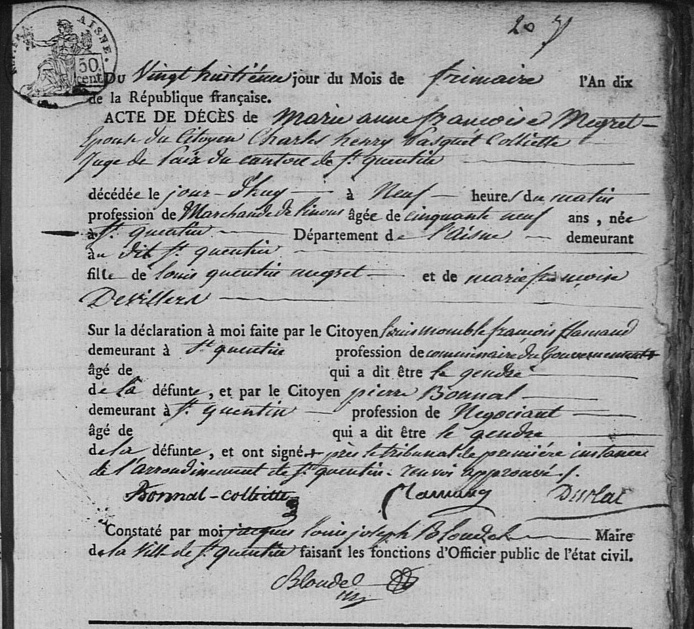 20
AISNE.
50
cent
Du Vingt huitième jour du Mois de frimaire l'An dix
de la République française.
ACTE DE DÉCÈS de marie anne françoise Megret
Epouse du Citoyen Charles henry Pasquet Colliette
Juge de Paix du canton de St quentin
décédée le jour d'huy à Neuf heures du matin
profession de Marchande de linons âgée de cinquante neuf ans, née
à St quentin Département de l'aisne demeurant
au dit St quentin
fille de louis quentin megret et de marie françoise
Devillers
Sur la déclaration à moi faite par le Citoyen françois flamand
demeurant à St quentin profession de commissaire du Gouvernement
âgé de qui a dit être le gendre
de La défunte, et par le Citoyen pierre Bonnal
demeurant à St quentin profession de Negociant
âgé de qui a dit être le gendre
de la défunte, et ont signé près le tribunal de première instance
de l'arrondissement de St quentin renvoi approuvé
Bonnal-Colliette Flamand
Constaté par moi jacques louis joseph Blondel Maire
de la Ville de St quentin faisant les fonctions d'Officier public de l'état civil.
Blondel